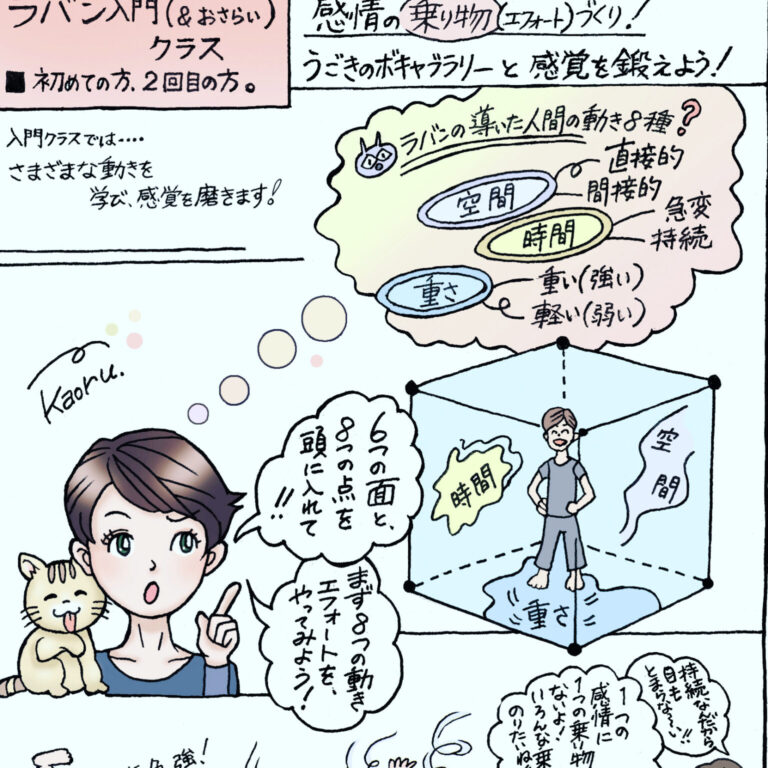 ラバン入門(&おさらい)
クラス
■初めての方、2回目の方。
感情の乗り物(エフォート)づくり!
うごきのボキャブラリーと感覚を鍛えよう!
入門クラスでは‥‥
さまざまな動きを
学び、感覚を磨きます!
ラバンの導いた人間の動き8種?
空間
直接的
間接的
時間
急変
持続
重さ
重い(強い)
軽い(弱い)
Kaoru.
6つの面と、
8つの点を
頭に入れて
!!
まず8つの動き
エフォートを、
やってみよう!
時間
空間
重さ
持続なんだから
目も
とまらな〜い!!
1つの
感情に
1つの乗り物
ないよ!
いろんな乗
のりたいね
強!